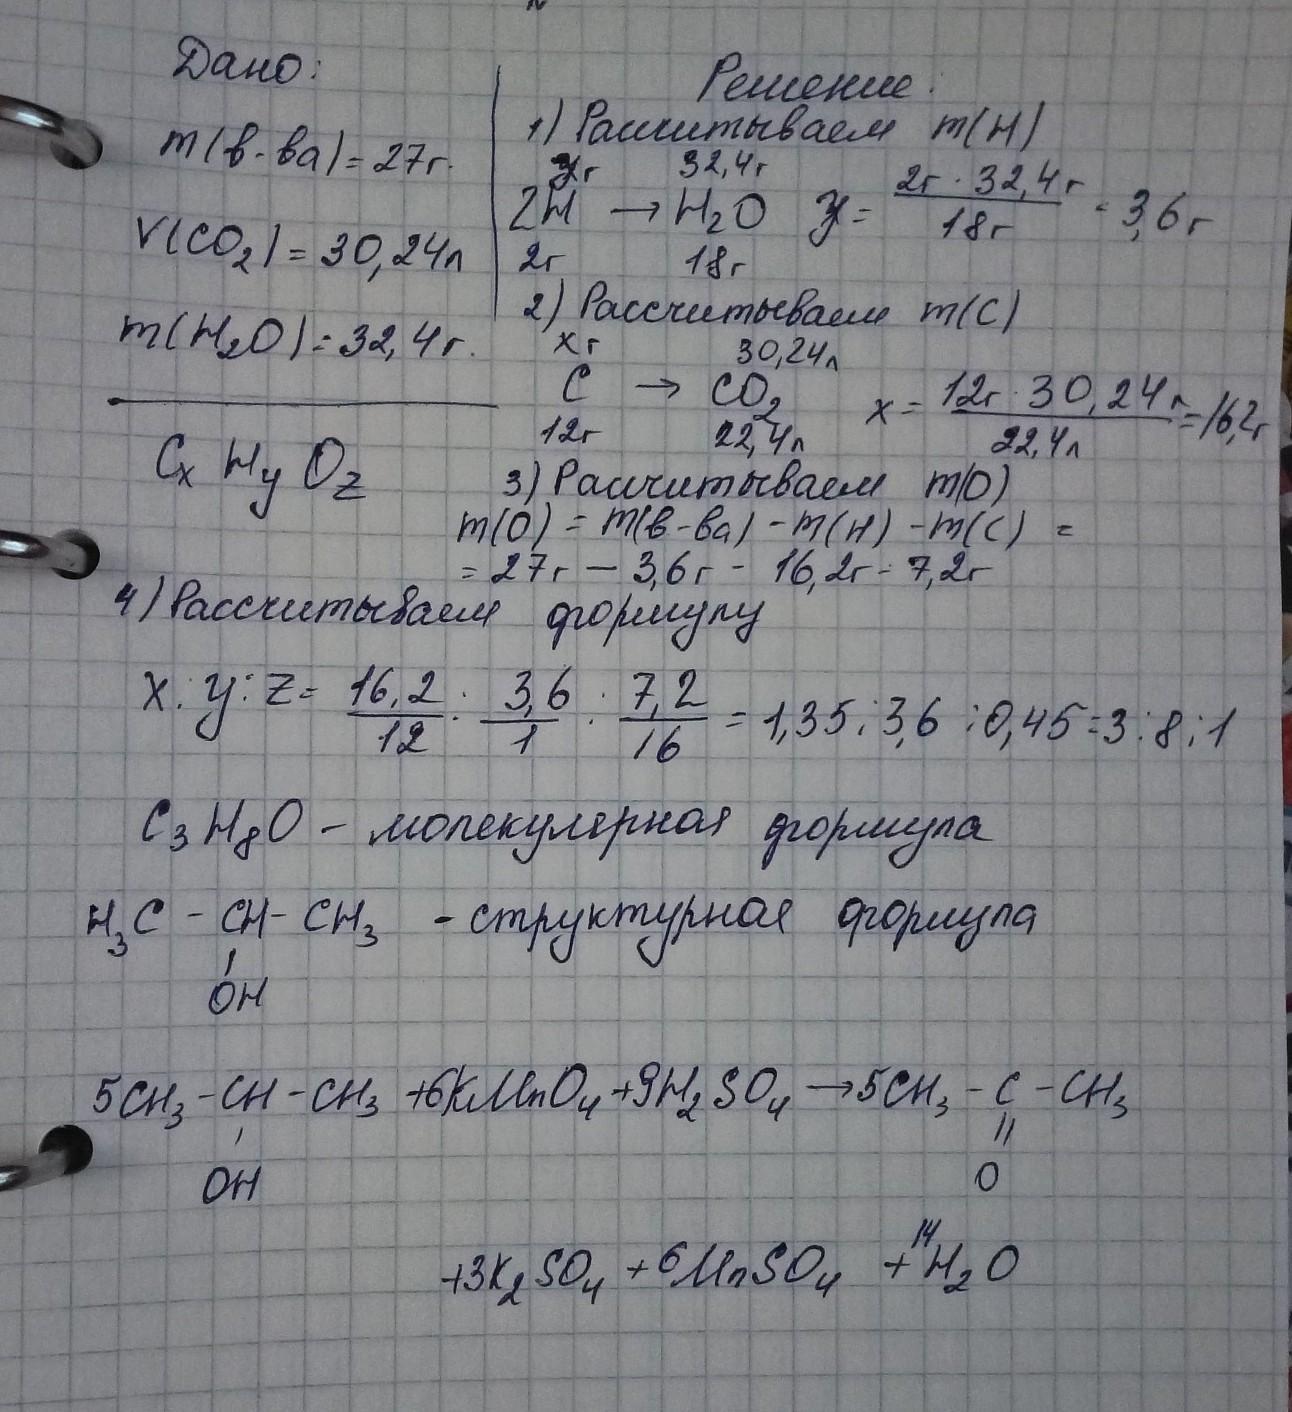 Дано:
m(в-ва) = 27г.
V(CO₂) = 30,24л
m(H₂O) = 32,4г.
CxHyOz
Решение:
1) Рассчитываем m(H)
yг 32,4г
2H → H₂O y = 2г · 32,4г / 18г = 3,6г
2г 18г
2) Рассчитываем m(C)
xг 30,24л
C → CO₂ x = 12г · 30,24л / 22,4л = 16,2г
12г 22,4л
3) Расчитываем m(O)
m(O) = m(в-ва) - m(H) - m(C) =
= 27г - 3,6г - 16,2г = 7,2г
4) Рассчитываем формулу
x : y : z = 16,2/12 : 3,6/1 : 7,2/16 = 1,35 : 3,6 : 0,45 = 3 : 8 : 1
C₃H₈O - молекулярная формула
H₃C - CH - CH₃ - структурная формула
OH
5CH₃ - CH - CH₃ + 6KMnO₄ + 9H₂SO₄ → 5CH₃ - C - CH₃
OH O
+ 3K₂SO₄ + 6MnSO₄ + 14H₂O